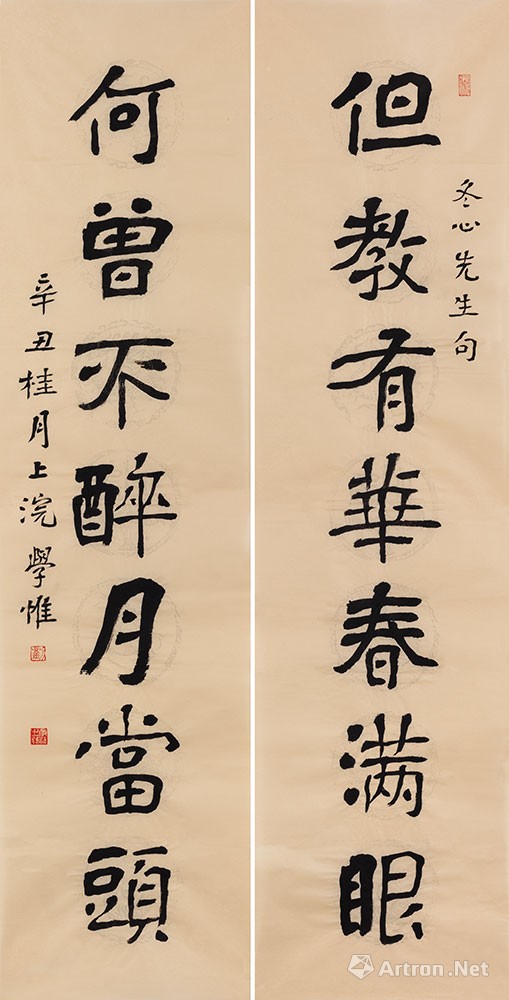 冬心先生句
但教有華春滿眼
何曾不醉月當頭
辛丑桂月上浣學惟
Artron.Net